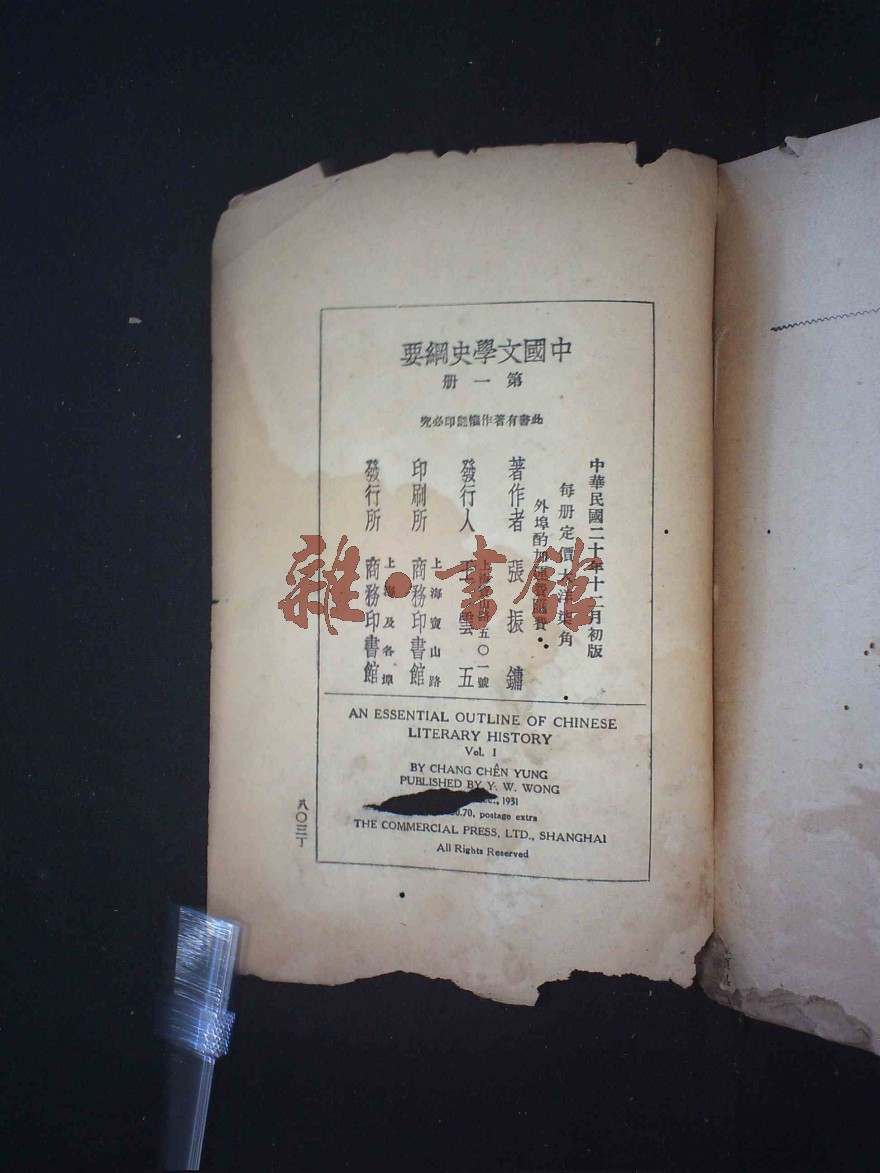 中國文學史綱要
第一册
此書有著作權翻印必究
中華民國二十年十二月初版
每册定價大洋柒角
外埠酌加運費匯費
著作者 張振鏞
發行人 王雲五
上海寶山路五〇一號
印刷所 商務印書館
上海寶山路
發行所 商務印書館
上海及各埠
AN ESSENTIAL OUTLINE OF CHINESE
LITERARY HISTORY
Vol. I
BY CHANG CHÊN YUNG
PUBLISHED BY Y. W. WONG
1931
0.70, postage extra
THE COMMERCIAL PRESS, LTD., SHANGHAI
All Rights Reserved
八〇三丁
雜·書館